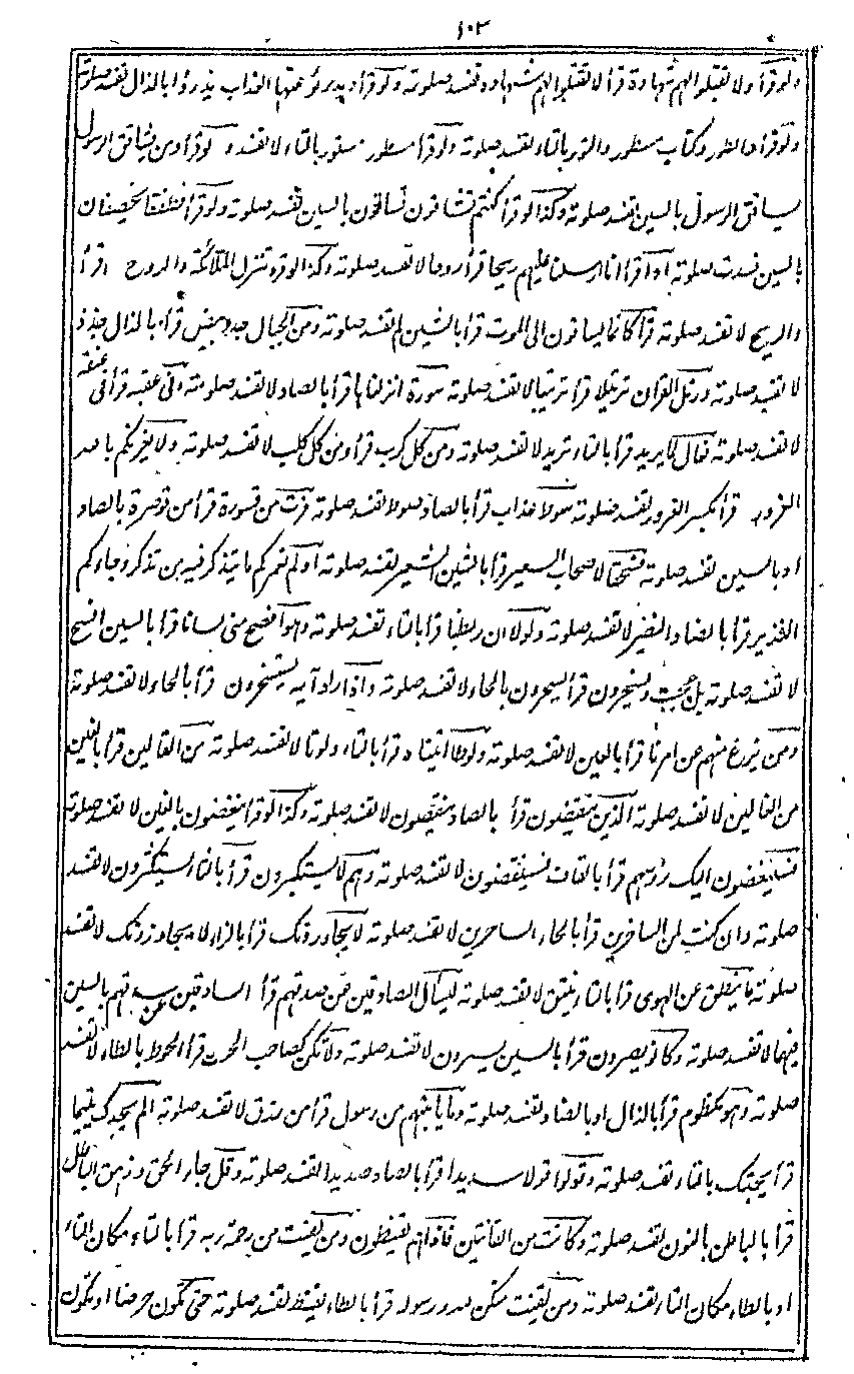 ١٠٢
ولو قرأ ولا تقبلوا لهم شهادة قرأ لا تقبلوا لهم شهاده تفسد صلوته ولو قرأ ويدرؤ عنها العذاب يذرؤا بالذال تفسد صلوته
ولو قرأ والطور وكتاب مسطور والتور بالتاء تفسد صلوته ولو قرأ مسطور مستور بالتاء لا تفسد ولو قرأ ومن يشاقق الرسول
يساقق الرسول بالسين تفسد صلوته وكذا لو قرأ كنتم تشاقون تساقون بالسين تفسد صلوته ولو قرأ فطفقا يخصفان
بالسين فسدت صلوته اذا قرأ انا ارسلنا عليهم ريحا قرأ روحا لا تفسد صلوته وكذا لو قرأ تنزل الملائكة والروح قرأ
والريح لا تفسد صلوته قرأ كانما يساقون الى الموت قرأ بالشين لم تفسد صلوته ومن الجبال جدد بيض قرأ بالذال جذذ
لا تفسد صلوته ورتل القرآن ترتيلا قرأ ترتيبا لا تفسد صلوته سورة انزلناها قرأ بالصاد لا تفسد صلوته وفى عقبه قرأ فى عنقه
لا تفسد صلوته فعال لما يريد قرأ بالتاء تريد لا تفسد صلوته ومن كل كرب قرأ ومن كل كلب لا تفسد صلوته ولا يغرنكم بالله
الغرور قرأ بكسر الغرور تفسد صلوته سوء عذاب قرأ بالصاد صوء لا تفسد صلوته فرت من قسورة قرأ من قوصرة بالصاد
او بالسين تفسد صلوته فسحقا لاصحاب السعير قرأ بالشين الشعير تفسد صلوته اولم نعمركم ما يتذكر فيه من تذكر وجاءكم
النذير قرأ بالضاد النضير لا تفسد صلوته ولولا ان ربطنا قرأ بالتاء تفسد صلوته وهو افصح منى لسانا قرأ بالسين افسح
لا تفسد صلوته بل عجبت ويسخرون قرأ يسحرون بالحاء لا تفسد صلوته واذا رأوا آية يستسخرون قرأ بالحاء لا تفسد صلوته
ومن يزغ منهم عن امرنا قرأ بالعين لا تفسد صلوته ولوطا آتيناه قرأ بالتاء ولوتا لا تفسد صلوته من القالين قرأ بالغين
من الغالين لا تفسد صلوته الذين ينقضون قرأ بالصاد ينقصون لا تفسد صلوته وكذا لو قرأ ينغضون بالغين لا تفسد صلوته
فسينغضون اليك رؤسهم قرأ بالقاف فسينقضون لا تفسد صلوته وهم لا يستكبرون قرأ بالثاء يستكثرون لا تفسد
صلوته وان كنت لمن الساخرين قرأ بالحاء الساحرين لا تفسد صلوته لا يجاورونك قرأ بالزاء لا يجاوزونك لا تفسد
صلوته ما ينطق عن الهوى قرأ بالتاء ينتق لا تفسد صلوته ليسأل الصادقين عن صدقهم قرأ السادقين عن سدقهم بالسين
فيهما لا تفسد صلوته وكانوا يصرون قرأ بالسين يسرون لا تفسد صلوته ولا تكن كصاحب الحوت قرأ الحوط بالطاء لا تفسد
صلوته وهو مكظوم قرأ بالذال او بالضاد تفسد صلوته وما يأتيهم من رسول قرأ من رزق لا تفسد صلوته الم يجدك يتيما
قرأ يجتك بالتاء تفسد صلوته وقولوا قولا سديدا قرأ بالصاد صديدا تفسد صلوته وقل جاء الحق وزهق الباطل
قرأ بالباطن بالنون تفسد صلوته وكانت من القانتين فاذا هم يقنطون ومن يقنت من رحمة ربه قرأ بالتاء مكان الطاء
او بالطاء مكان التاء تفسد صلوته ومن يقنت منكن لله ورسوله قرأ بالطاء يقنط تفسد صلوته حتى تكون حرضا او تكون